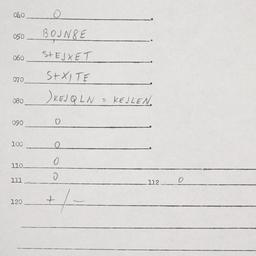 040 0
050 BOJNŠE
060 StEJXET
070 StXITE
080 )KEJQLN = KEJLEN
090 0
100 0
110 0
111 0 112 0
120 + / -